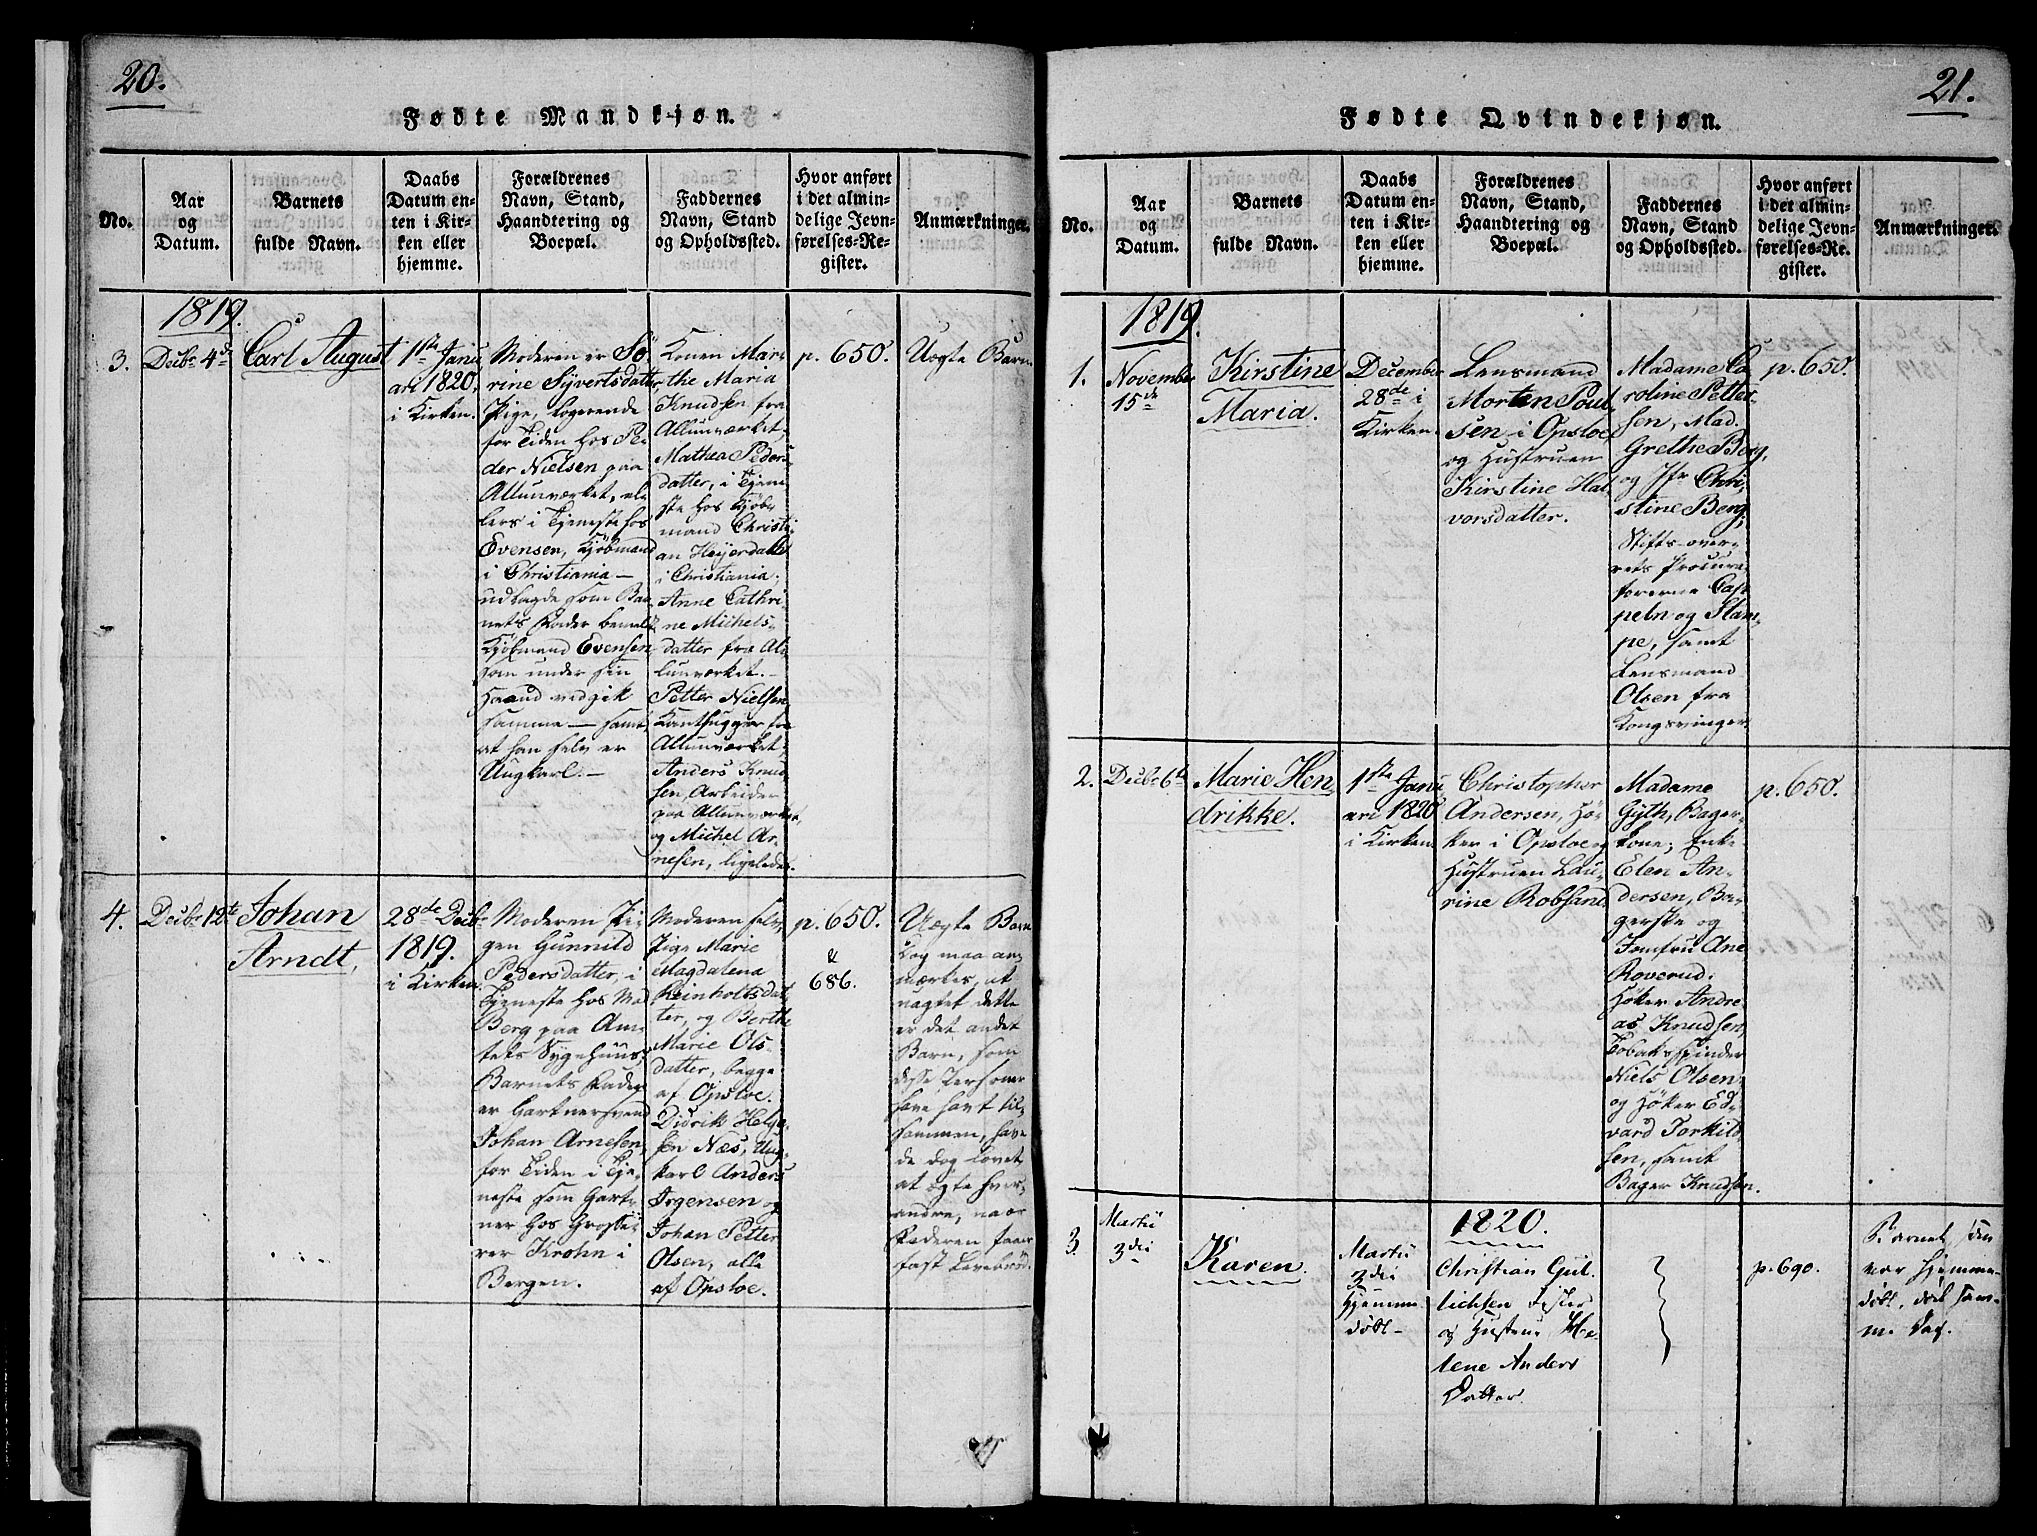 20.
Fødte Mandkjøn.
No.
Aar
og
Datum.
Barnets
fulde Navn.
Daabs
Datum en-
ten i Kir-
ken eller
hjemme.
Forældrenes
Navn, Stand,
Haandtering og
Boepæl.
Faddernes
Navn, Stand
og Opholdssted.
Hvor anført
i det almin-
delige Jevn-
førelses-Re-
gister.
Anmærkninger.
1819.
3.
Decbr 4de
Carl August
1ste Janu
ari 1820,
i Kirken.
Moderen er Sö-
rine Syvertsdatter,
Pige, logerende
for Tiden hos Pe-
der Nielsen paa
Allunværket, el-
lers i Tjeneste hos
Evensen, Kjöbmand
i Christiania —
udlagde som Bar-
nets Fader bemeldte
Kjöbmand Evensen,
som under sin
Haand vedgik
samme — samt,
at han selv er
Ungkarl. —
Konen Mari
the Maria
Knudsen fra
Allunværket,
Mathea Peders-
datter, i Tjene-
ste hos Kjöb-
mand Christi-
an Heyerdahl
i Christiania.
Anne Cathri-
ne Michels-
datter fra Al-
lunværket. —
Petter Nielsen
fra
Allunværket.
Anders Knud-
sen, Arbeider
paa Allunværket,
og Michel Ar-
nesen, ligeledes.
p. 650.
Uægte Barn.
4.
Decbr 12te
Johan
Arndt,
28de Decbr
1819.
i Kirken.
Moderen Pi-
gen Gunnild
Pedersdatter, i
Tjeneste hos Md
Berg paa Am-
tets Sygehuus,
Barnets Fader
er Gartnersvend
Johan Arnesen,
for Tiden i Tje-
neste som Gart-
ner hos Grosse-
rer Krohn i
Bergen.
Moderen selv,
Pige Marie
Magdalena
Reinholtsdat-
ter, og Berthe
Marie Ols-
datter, begge
af Opsloe.
Didrik Helge-
sen Næs, Ung-
karl Anders
Jrgensen og
Johan Petter
Olsen, alle
af Opsloe.
p. 650.
&
686.
Uægte Barn
Dog maa an-
mærkes, at
uagtet dette
er det andet
Barn, som
disse Personer
have havt til-
sammen, have
de dog lovet
at ægte hver-
andre, naar
Faderen faaer
fast Levebröd.
21.
Fødte Qvindekjøn.
No.
Aar
og
Datum.
Barnets
fulde Navn.
Daabs
Datum en-
ten i Kir-
ken eller
hjemme.
Forældrenes
Navn, Stand,
Haandtering og
Boepæl.
Faddernes
Navn, Stand
og Opholdssted.
Hvor anført
i det almin-
delige Jevn-
førelses-Re-
gister.
Anmærkninger.
1819.
1.
November
15de
Kirstine
Maria.
December
28de i
Kirken.
Lensmand
Morten Poul-
sen i Opsloe,
og Hustruen
Kirstine Hal-
vorsdatter.
Madame Ca-
roline Petter-
sen, Mad.
Grethe Berg,
og Jfr Chri-
stine Berg,
Stifts-over-
rets Procura-
torerne
og Stam-
pe, samt
Lensmand
Olsen fra
Kongsvinger
p. 650.
2.
Decbr 6te
Marie Hen
drikke.
1ste Janu
ari 1820
i Kirken
Christopher
Andersen, Hö-
ker i Opsloe og
Hustruen Lau-
rine Robsand
Madame
Gyth, Bager-
kone; Enke
Elen An-
dersen, Ba-
gerske og
Jomfru Ane
Roverud.
Höker Andre-
as Knudsen,
Tobaksspinder
Niels Olsen
og Höker Ed-
vard Torkild-
sen, samt
Bager Knudsen.
p. 650.
1820.
3.
Martii
3die
Karen.
Martii
3die
Hjemme
döbt —
Christian Gul-
lichsen Fisker
og Hustrue He-
lene Anders
Datter
p. 690.
Barnet
var Hjemme-
döbt, död sam-
me Dag.